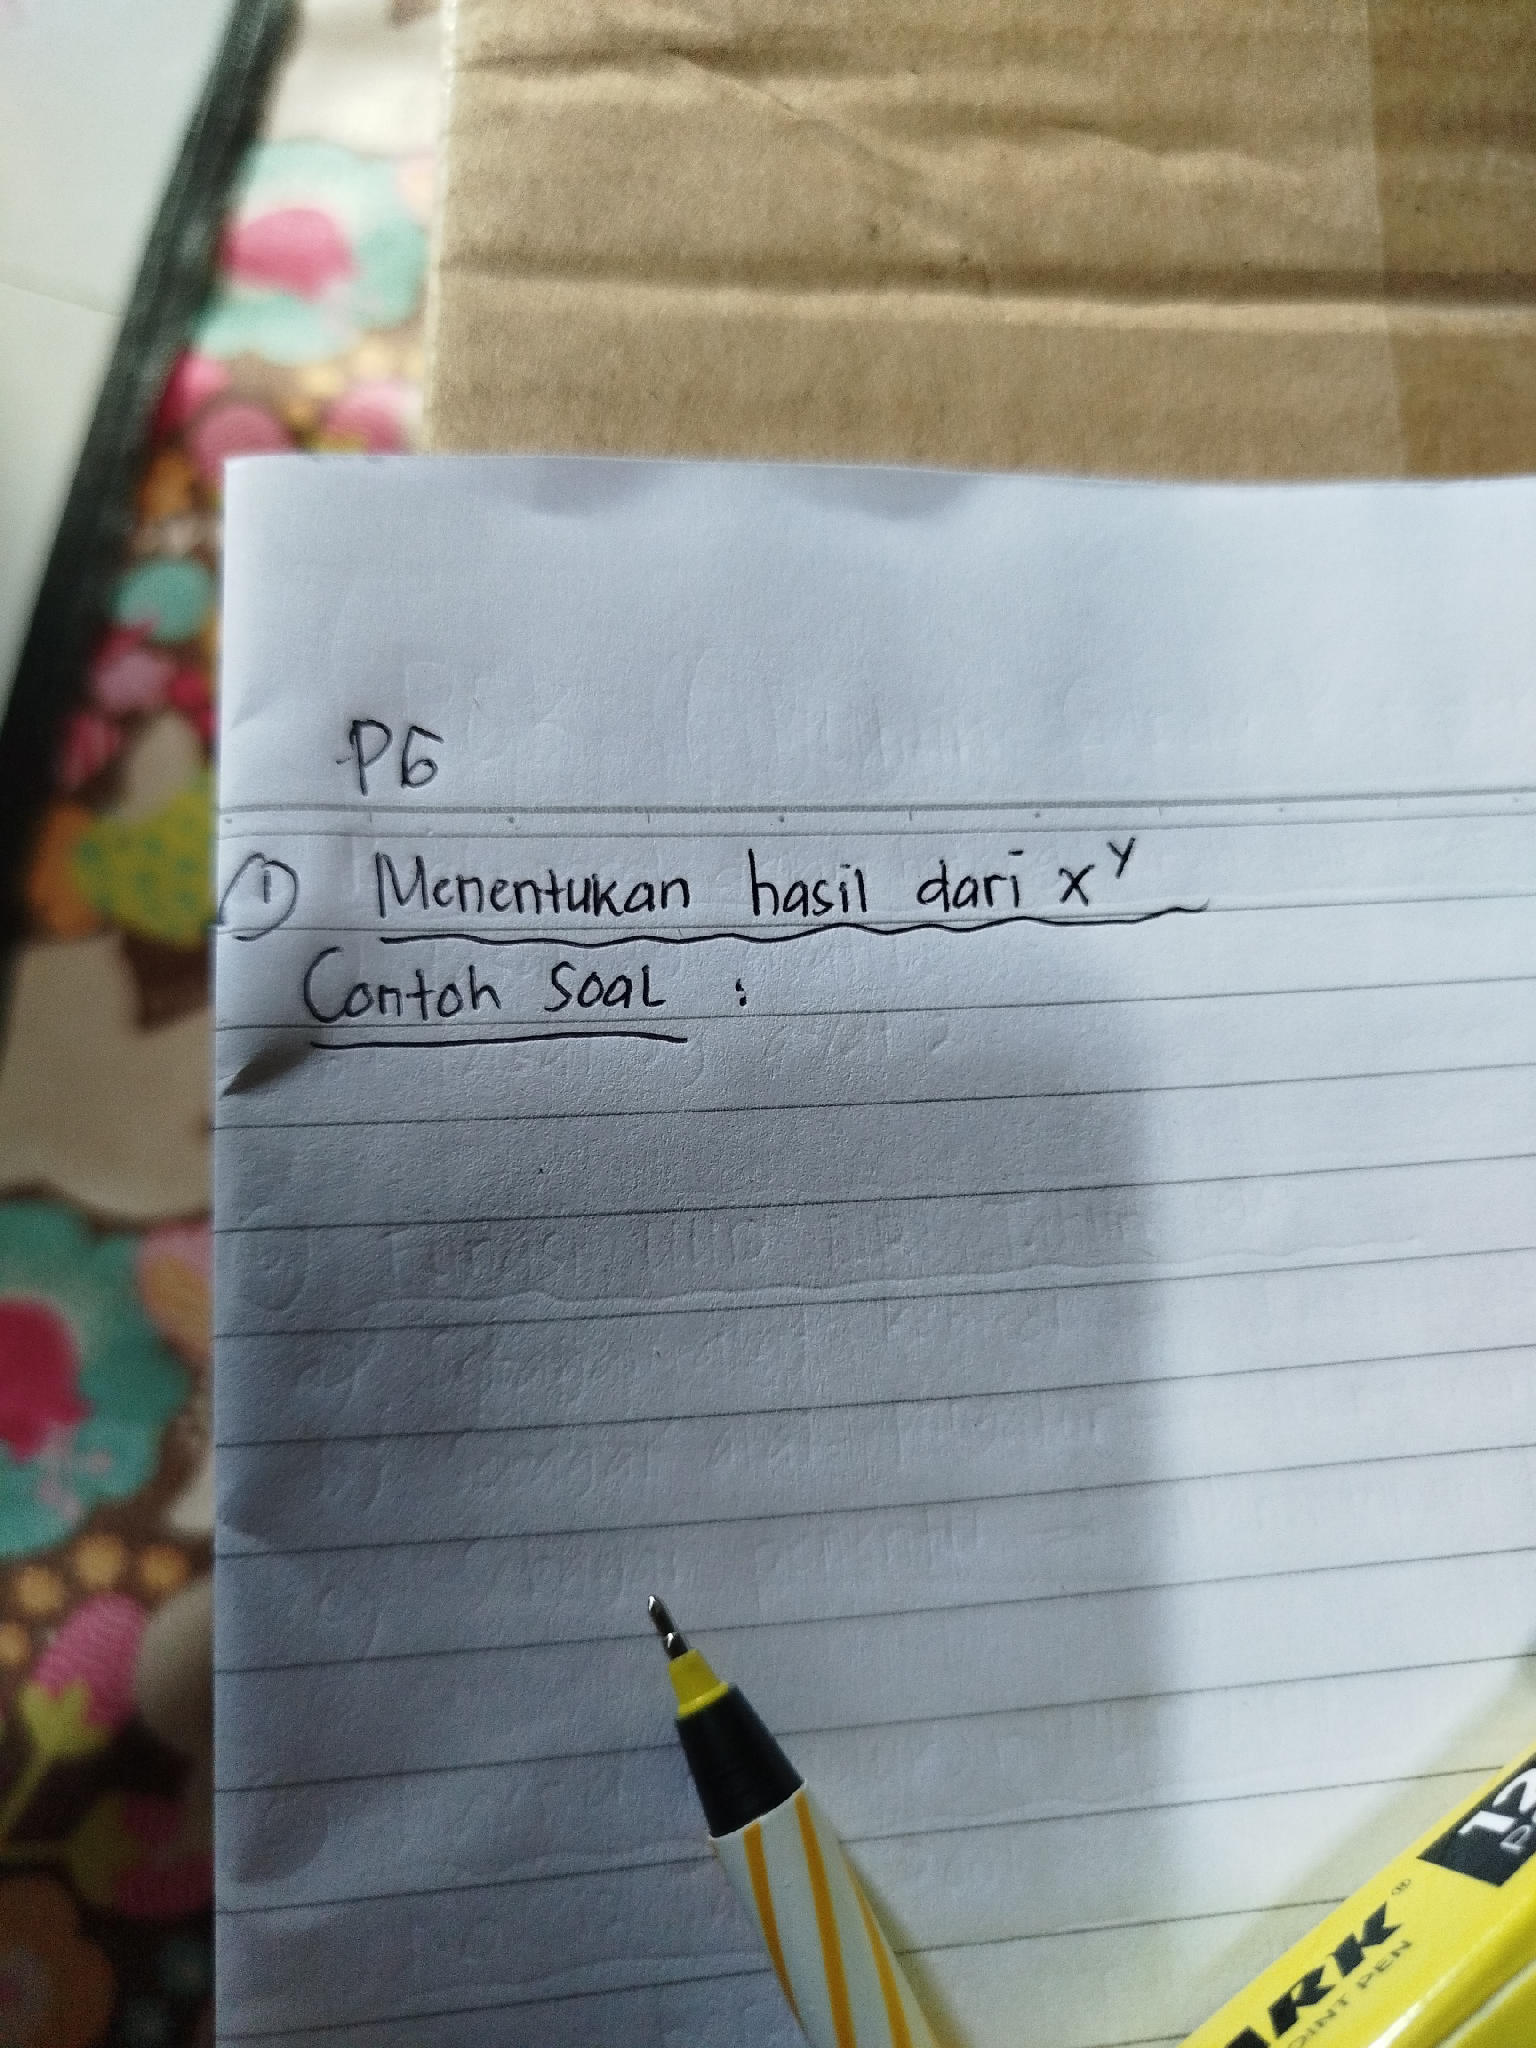 PG
① Menentukan hasil dari x^y
Contoh Soal :
12
ARK®
OINT PEN